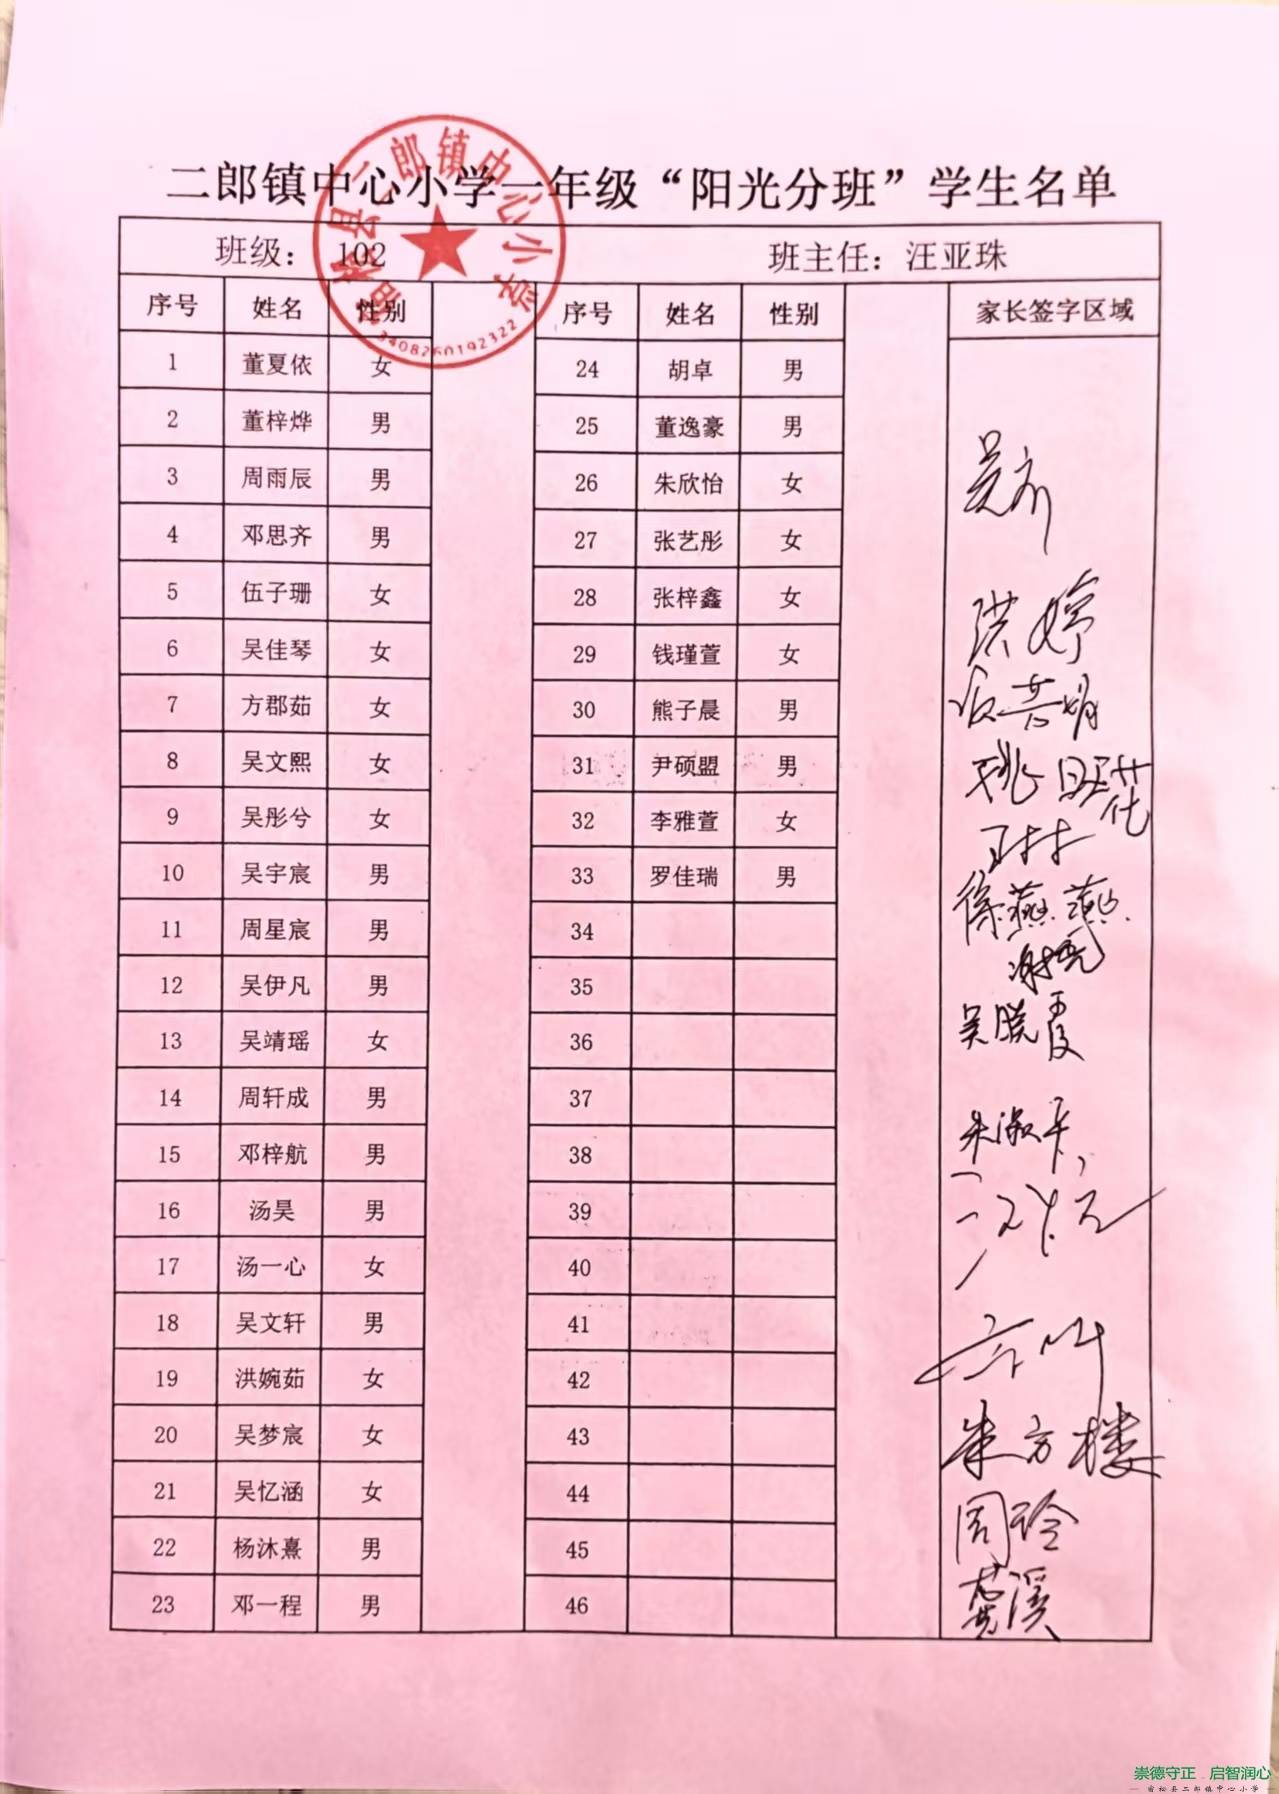 二郎镇中心小学一年级“阳光分班”学生名单
宿松县二郎镇中心小学
3408260192322
班级： 102 班主任：汪亚珠
序号 姓名 性别 序号 姓名 性别 家长签字区域
1 董夏依 女 24 胡卓 男
2 董梓烨 男 25 董逸豪 男
3 周雨辰 男 26 朱欣怡 女
4 邓思齐 男 27 张艺彤 女
5 伍子珊 女 28 张梓鑫 女
6 吴佳琴 女 29 钱瑾萱 女
7 方郡茹 女 30 熊子晨 男
8 吴文熙 女 31 尹硕盟 男
9 吴彤兮 女 32 李雅萱 女
10 吴宇宸 男 33 罗佳瑞 男
11 周星宸 男 34
12 吴伊凡 男 35
13 吴靖瑶 女 36
14 周轩成 男 37
15 邓梓航 男 38
16 汤昊 男 39
17 汤一心 女 40
18 吴文轩 男 41
19 洪婉茹 女 42
20 吴梦宸 女 43
21 吴忆涵 女 44
22 杨沐熹 男 45
23 邓一程 男 46
洪婷
徐燕燕
吴晓霞
朱方楼
周玲
崇德守正 启智润心
宿松县二郎镇中心小学